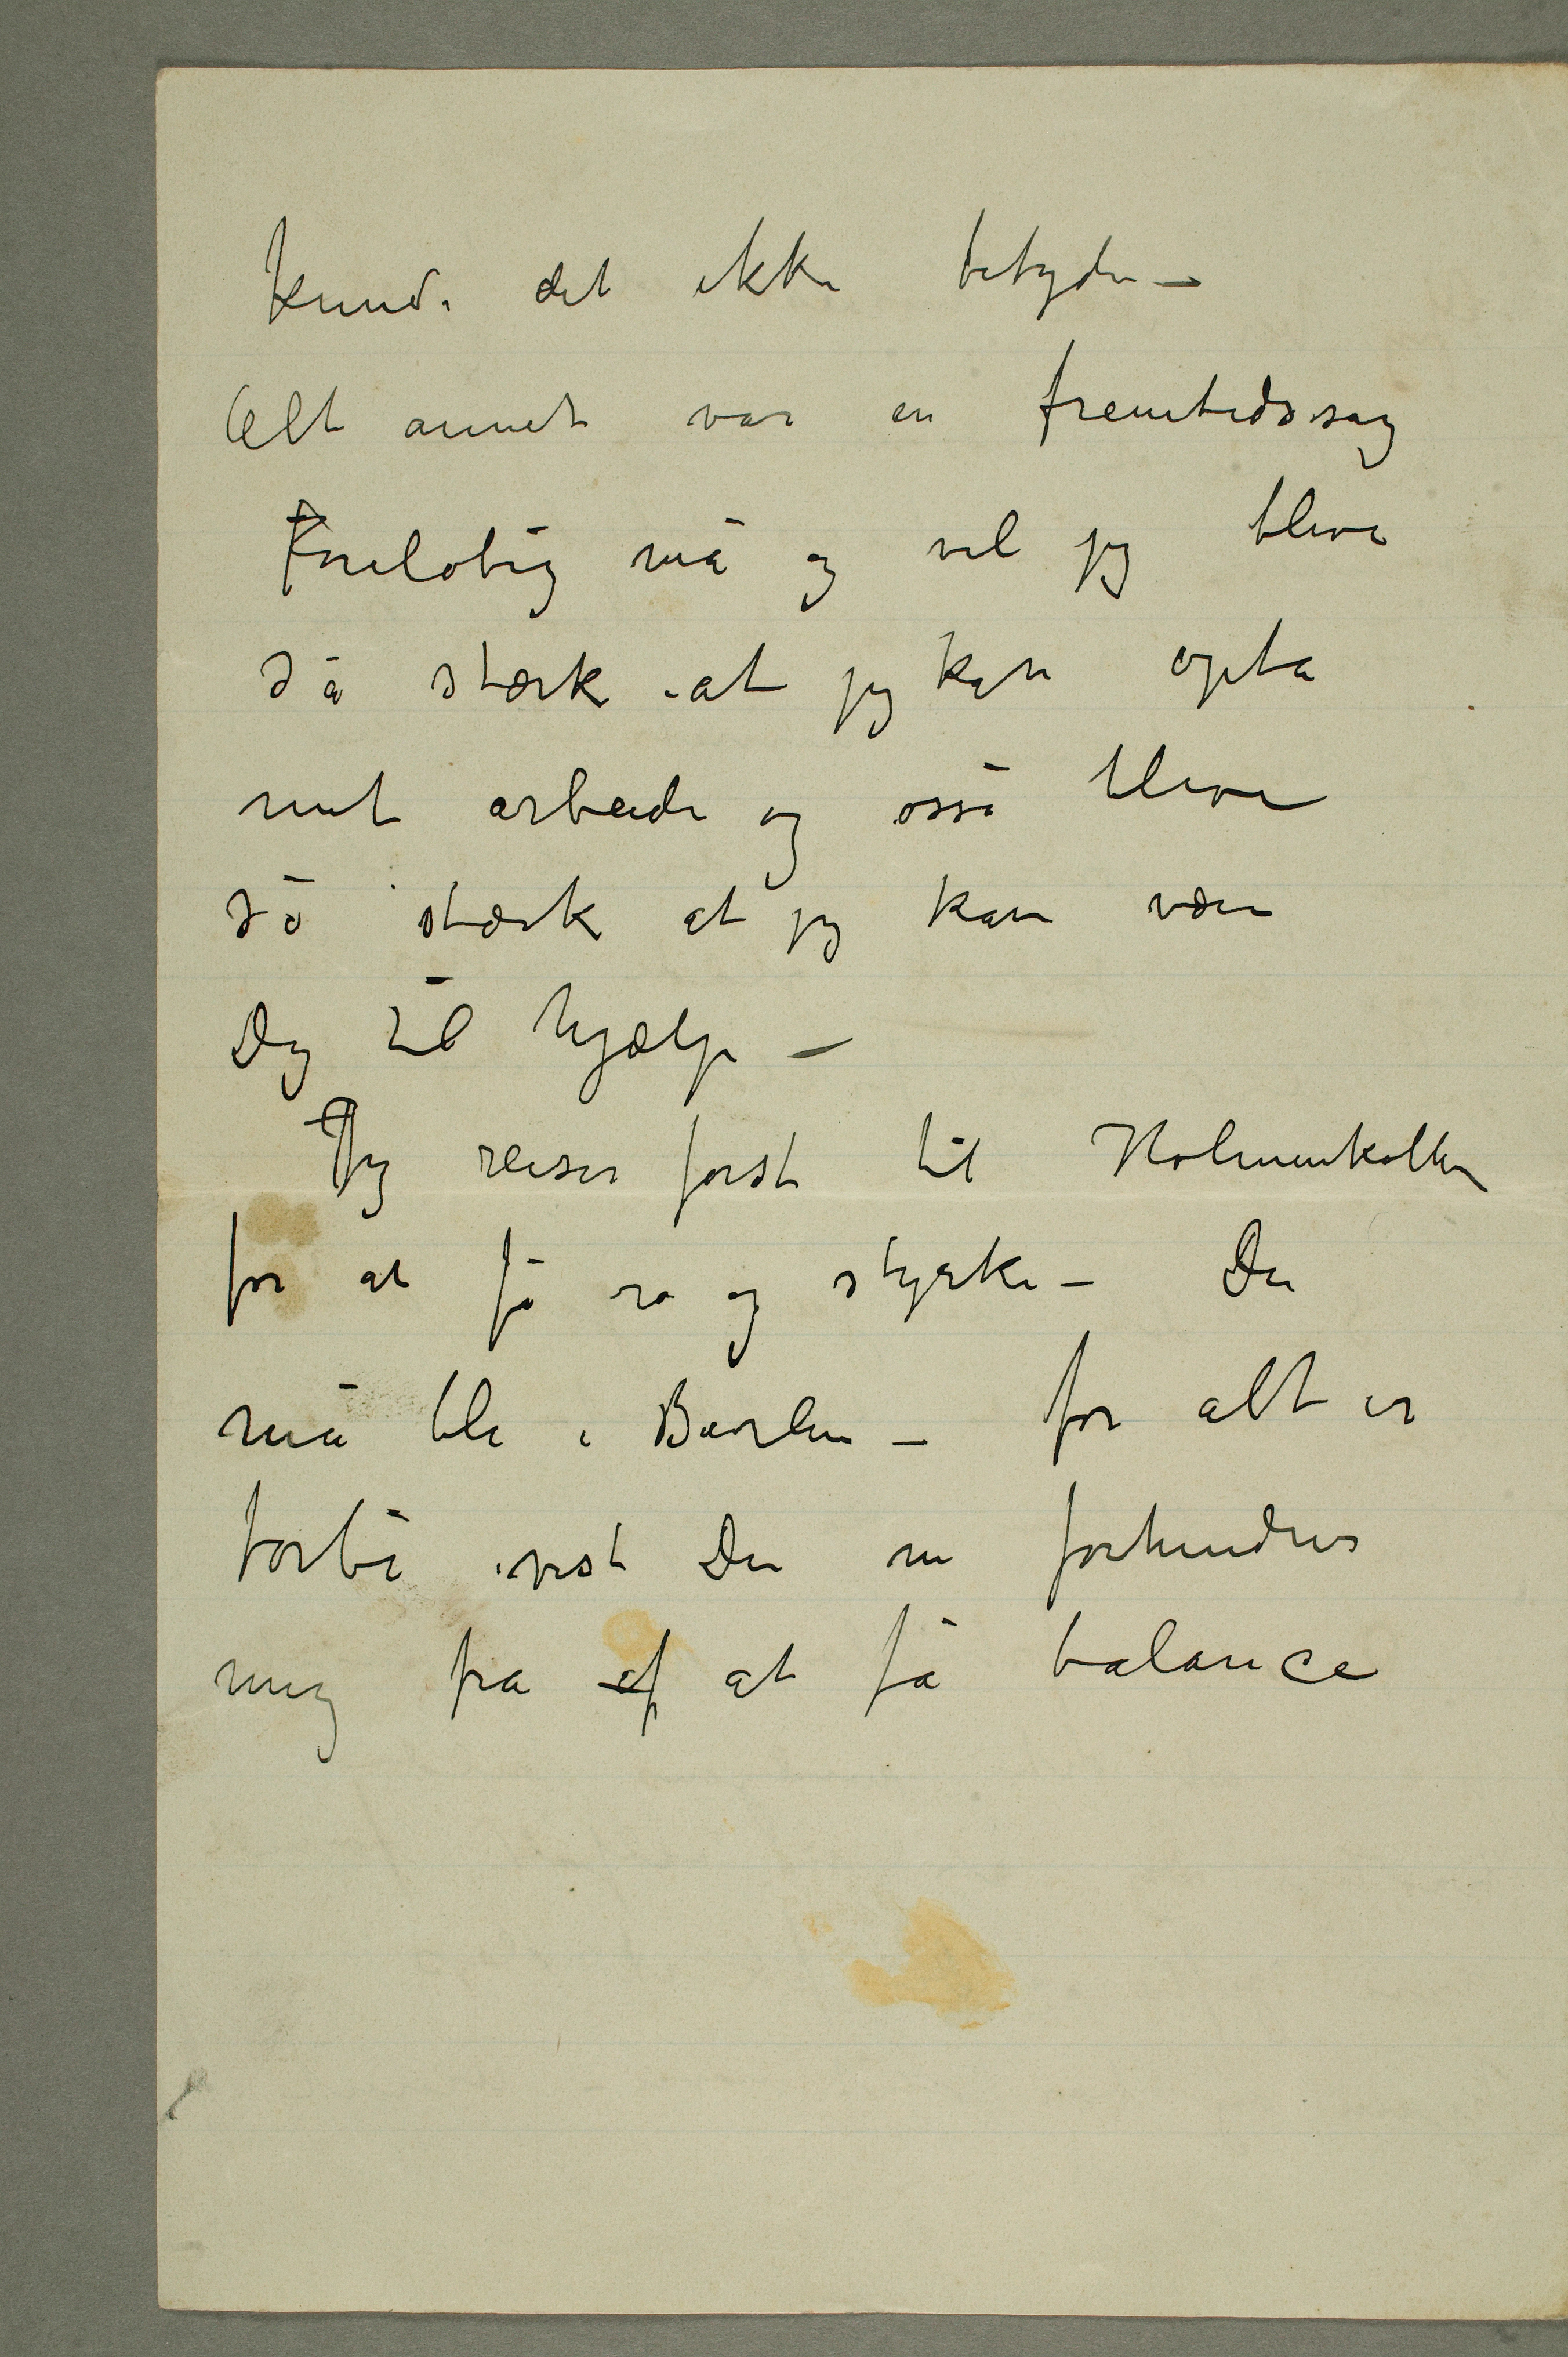 kunde det ikke betyde –
Alt annet var en fremtidssag
Foreløbig må og vil jeg blive
så stærk at jeg kan opta
mit arbeide og osså blive
så stærk at jeg kan være
Dig til hjælp –
Jeg reiser først til Holmenkollen
for at få ro og styrke – Du
må bli i Berlin – for alt er
forbi vist Du nu forhindrer
mig fra af at få balance